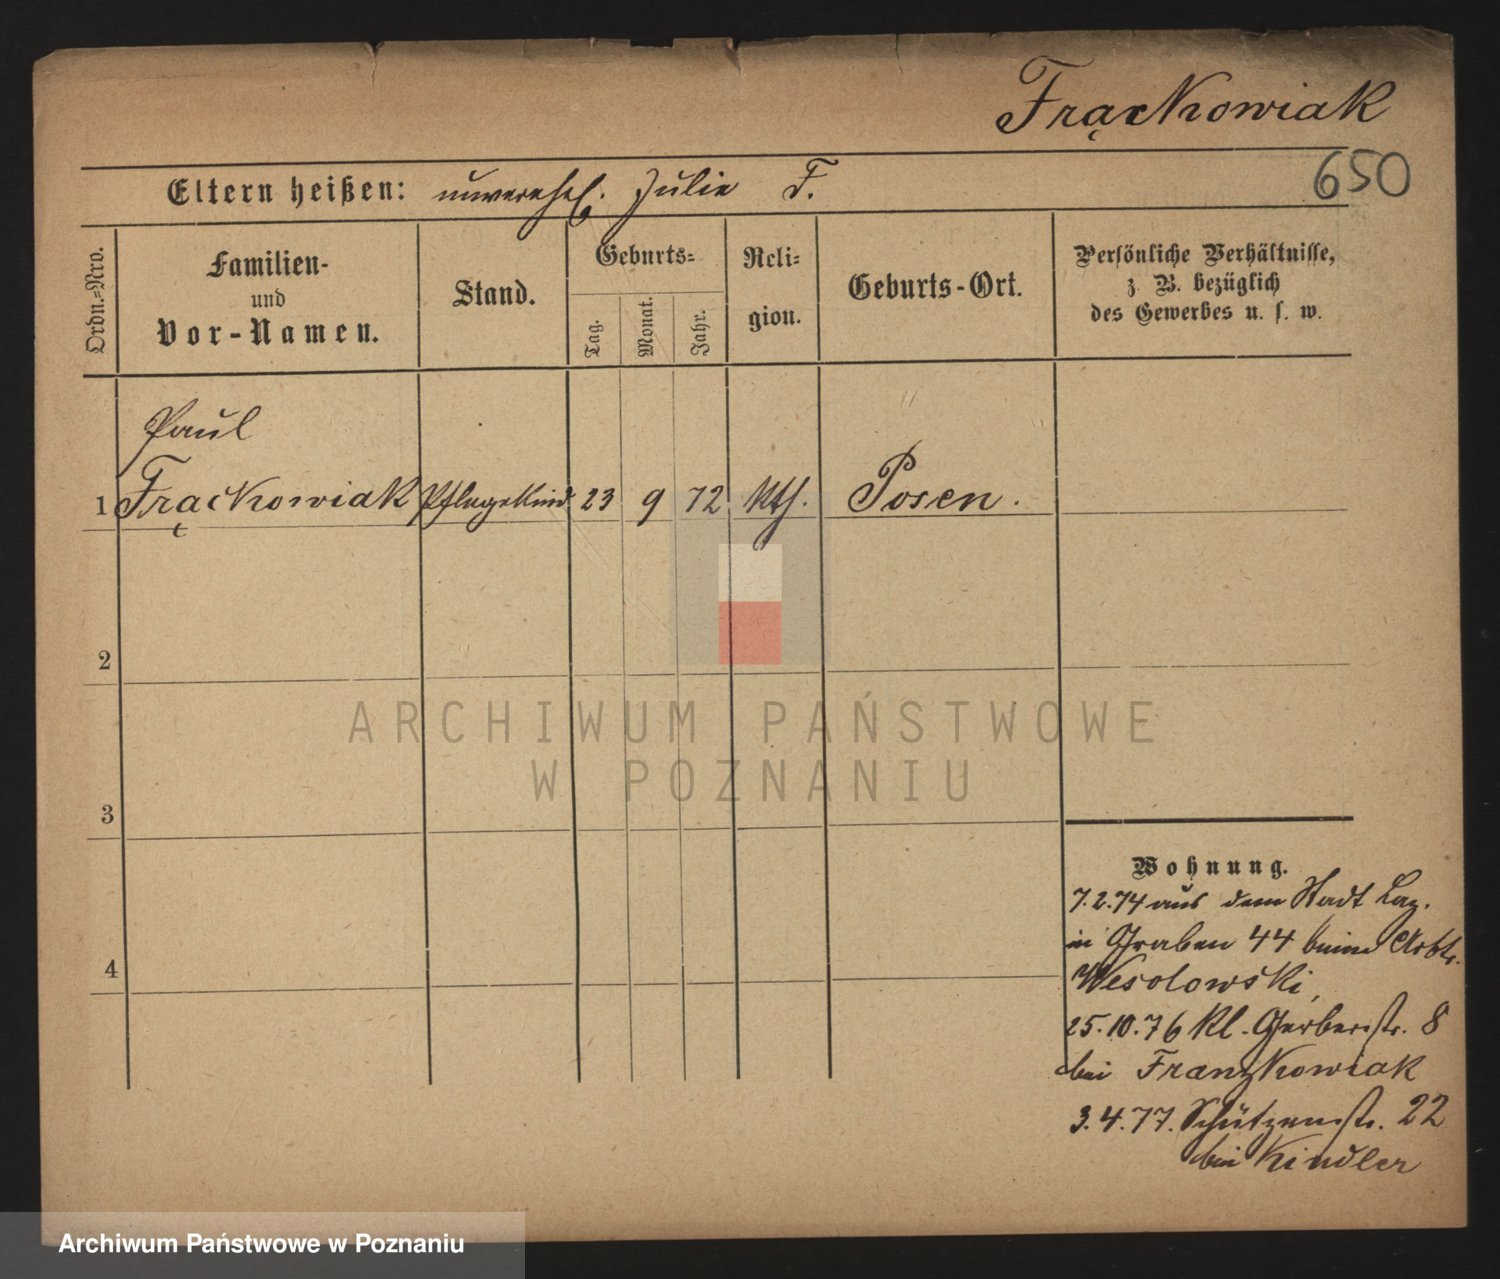 Frąckowiak
650
Eltern heißen: unverehel. Julie F.
Ordn.=Nro.
Familien-
und
Vor-Namen.
Stand.
Geburts=
Tag.
Monat.
Jahr.
Reli=
gion.
Geburts-Ort.
Persönliche Verhältnisse,
z. B. bezüglich
des Gewerbes u. s. w.
Paul
1 Frąckowiak Pflegekind 23 9 72 kth. Posen.
2
3
4
Wohnung.
7.2.74 aus dem Stadt Laz.
in Graben 44 beim Arbtr.
Wesolowski,
25.10.76 Kl. Gerberstr. 8
bei Franzkowiak
3.4.77. Schützenstr. 22
bei Kindler
ARCHIWUM PAŃSTWOWE
W POZNANIU
Archiwum Państwowe w Poznaniu